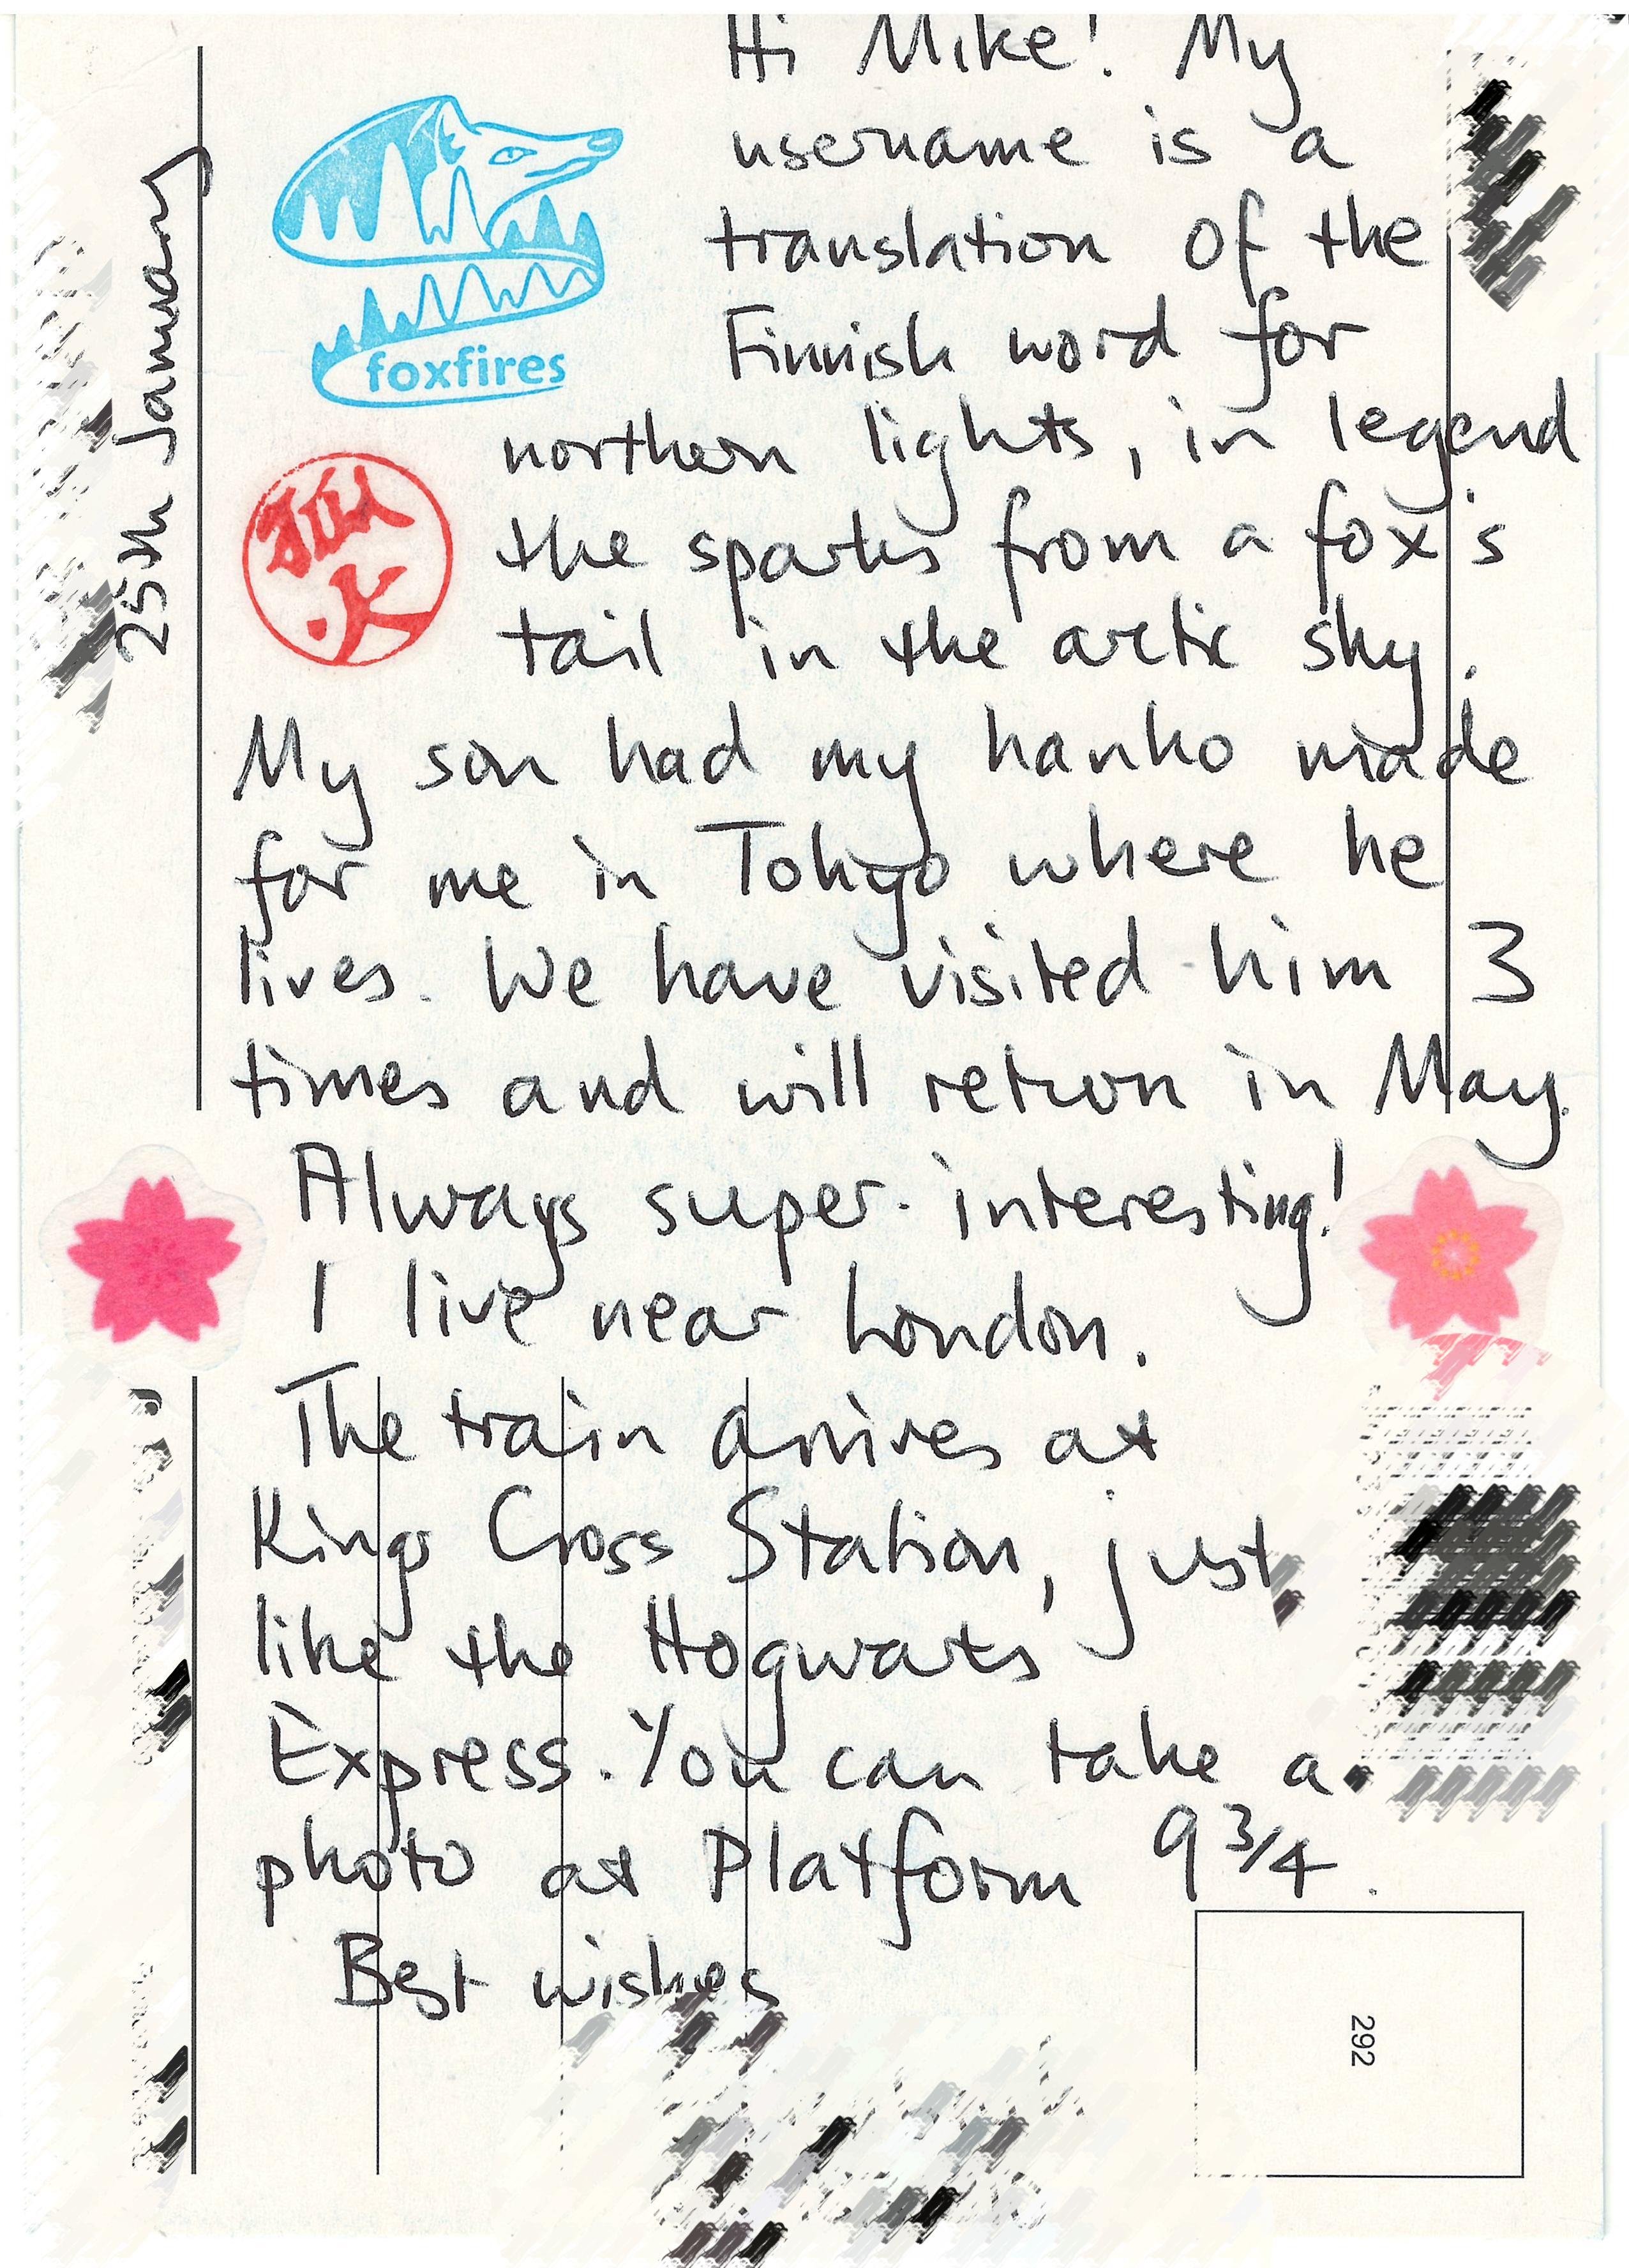 25th January
foxfires
狐火
Hi Mike! My
username is a
translation of the
Finnish word for
northern lights, in legend
the sparks from a fox's
tail in the arctic sky.
My son had my hanko made
for me in Tokyo where he
lives. We have visited him 3
times and will return in May.
Always super interesting!
I live near London.
The train arrives at
Kings Cross Station, just
like the Hogwarts
Express. You can take a
photo at Platform 9 3/4.
Best wishes
292